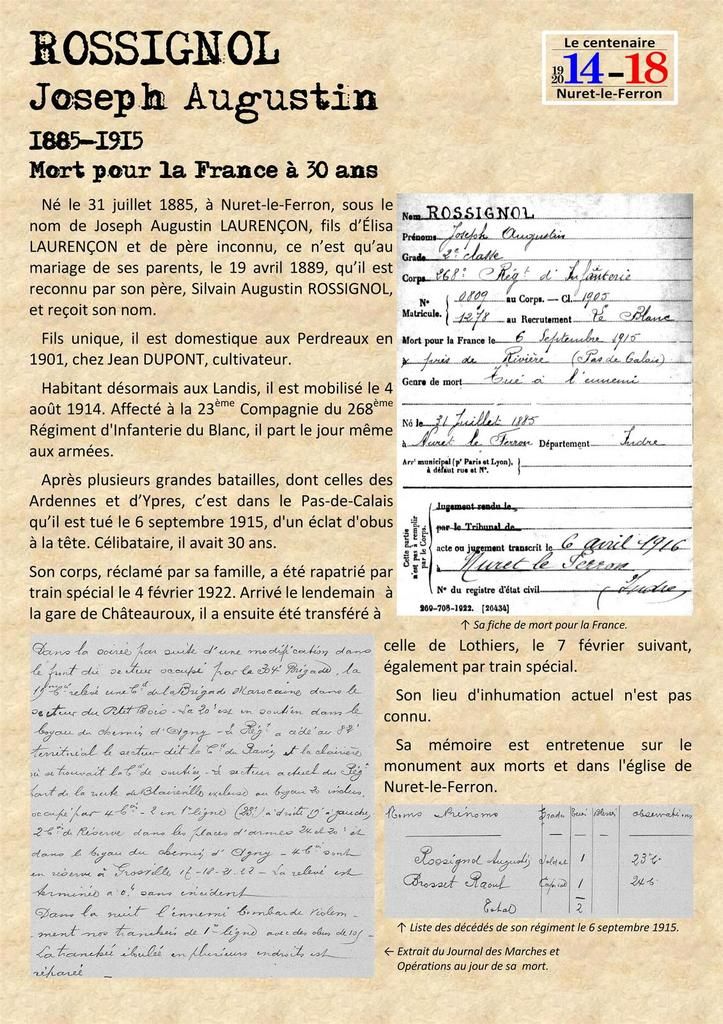 ROSSIGNOL
Joseph Augustin
1885-1915
Mort pour la France à 30 ans
Le centenaire
1920 14-18
Nuret-le-Ferron
Né le 31 juillet 1885, à Nuret-le-Ferron, sous le
nom de Joseph Augustin LAURENÇON, fils d'Élisa
LAURENÇON et de père inconnu, ce n'est qu'au
mariage de ses parents, le 19 avril 1889, qu'il est
reconnu par son père, Silvain Augustin ROSSIGNOL,
et reçoit son nom.
Fils unique, il est domestique aux Perdreaux en
1901, chez Jean DUPONT, cultivateur.
Habitant désormais aux Landis, il est mobilisé le 4
août 1914. Affecté à la 23ème Compagnie du 268ème
Régiment d'Infanterie du Blanc, il part le jour même
aux armées.
Après plusieurs grandes batailles, dont celles des
Ardennes et d'Ypres, c'est dans le Pas-de-Calais
qu'il est tué le 6 septembre 1915, d'un éclat d'obus
à la tête. Célibataire, il avait 30 ans.
Son corps, réclamé par sa famille, a été rapatrié par
train spécial le 4 février 1922. Arrivé le lendemain à
la gare de Châteauroux, il a ensuite été transféré à
Nom ROSSIGNOL
Prénoms Joseph Augustin
Grade 2e classe
Corps 268e Régt d'Infanterie
N° Matricule. 0809 au Corps. — Cl. 1905
1278 au Recrutement Le Blanc
Mort pour la France le 6 Septembre 1915
à près de Rivière (Pas de Calais)
Genre de mort Tué à l'ennemi
Né le 31 Juillet 1885
à Nuret le Ferron Département Indre
Arrt municipal (pr Paris et Lyon),
à défaut rue et N°.
Cette partie n'est pas à remplir par le Corps.
Jugement rendu le
par le Tribunal de
acte ou jugement transcrit le 6 avril 1916
à Nuret le Ferron
N° du registre d'état civil Indre
269-708-1922. [26434]
↑ Sa fiche de mort pour la France.
celle de Lothiers, le 7 février suivant,
également par train spécial.
Son lieu d'inhumation actuel n'est pas
connu.
Sa mémoire est entretenue sur le
monument aux morts et dans l'église de
Nuret-le-Ferron.
Dans la soirée par suite d'une modification dans
le front du secteur occupé par la Brigade, la
relève une Cie de la Brigade Marocaine dans le
secteur du Petit Bois - La 20e est en soutien dans le
boyau du chemin d'Agny - Le Régt a cédé au
territorial le secteur dit la Cie de et la clairière
où se trouvait la Cie de soutien - Le secteur actuel du Régt
part de la route de Blaireville exclue au boyau 20 inclus,
occupé par 4 Cies - 2 en 1e ligne (23e) à droite 19e gauche,
2 Cies de Réserve dans les places d'armes 24 et 20e et
dans le boyau du chemin d'Agny - 4 Cies sont
en réserve à Grosville 17-18-21-22 - La relève est
terminée à 0h sans incident
Dans la nuit l'ennemi bombarde violem-
ment nos tranchées de 1e ligne avec des obus de 105
La tranchée éboulée en plusieurs endroits est
réparée
Noms Prénoms Grades Tués Blessés observations
Rossignol Augustin Soldat 1 23e C
Brosset Raoul Caporal 1 24 C
Total 2
↑ Liste des décédés de son régiment le 6 septembre 1915.
← Extrait du Journal des Marches et
Opérations au jour de sa mort.